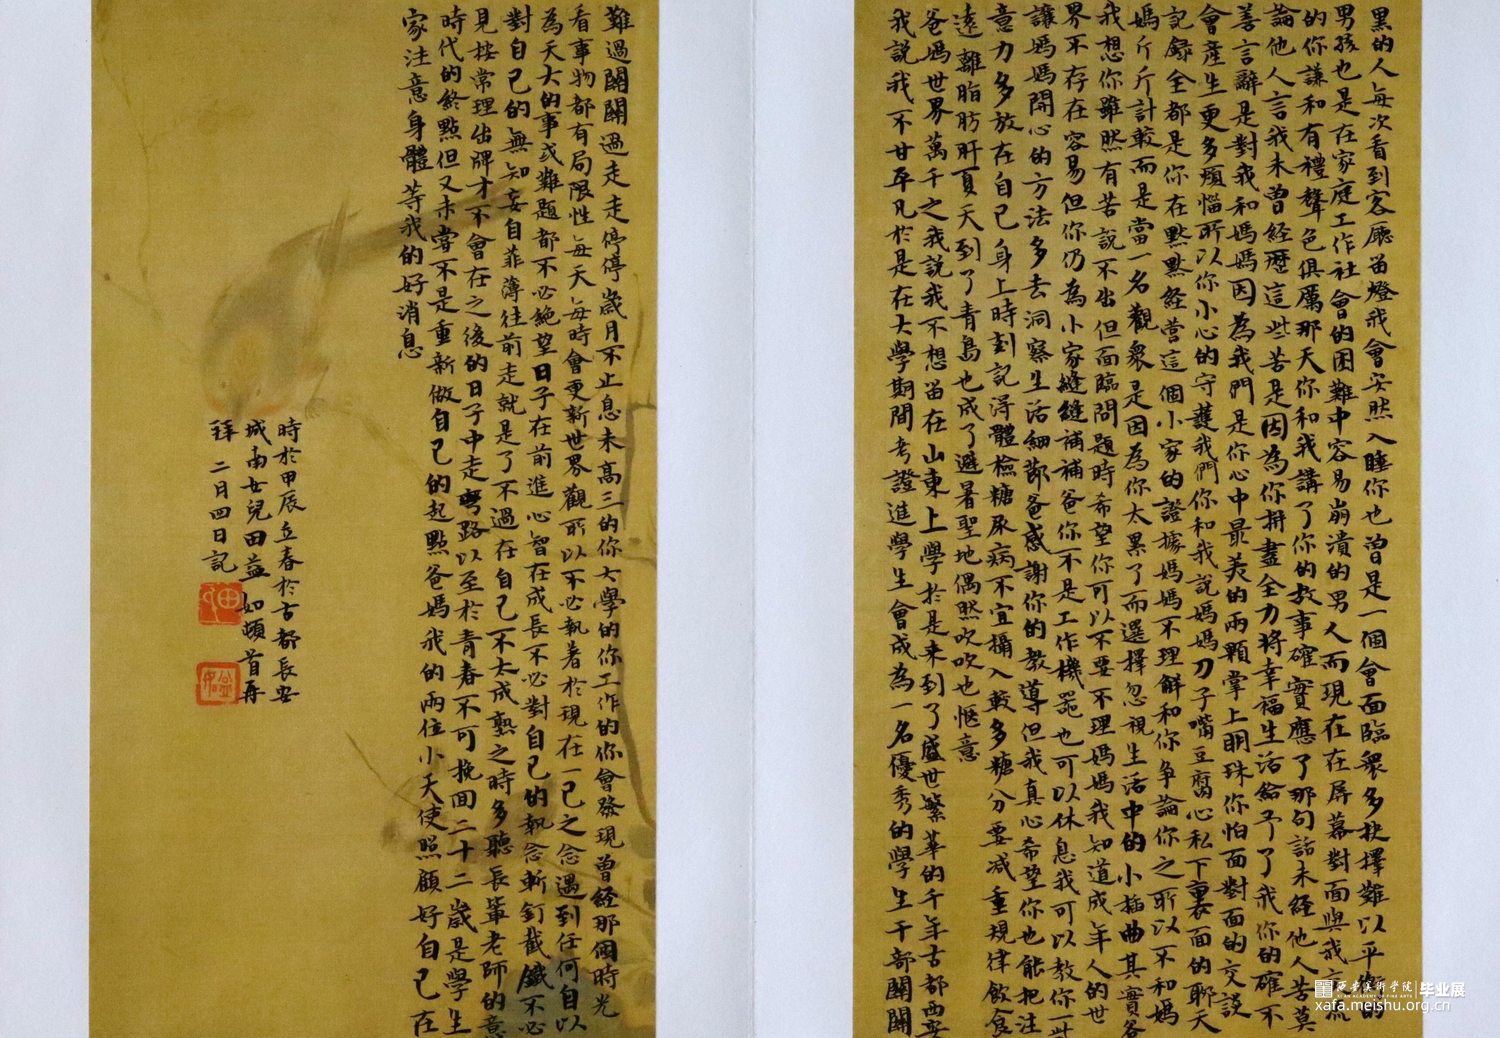 黑的人每次看到客廳留燈我會安然入睡你也曾是一個會面臨衆多抉擇難以平衡的
男孩也是在家庭工作社會的困難中容易崩潰的男人而現在在屏幕對面與我交流
的你謙和有禮聲色俱厲那天你和我講了你的故事確實應了那句話未經他人苦莫
論他人言我未曾經歷這些苦是因為你拼盡全力將幸福生活給予了我你的確不
善言辭是對我和媽媽因為我們是你心中最美的兩顆掌上明珠你怕面對面的交談
會產生更多煩惱所以你小心的守護我們你和我說媽媽刀子嘴豆腐心私下裏面的聊天
記錄全都是你在點點經營這個小家的證據媽媽不理解和你爭論你之所以不和媽
媽斤斤計較而是當一名觀衆是因為你太累了而選擇忽視生活中的小插曲其實爸
我想你雖然有苦說不出但面臨問題時希望你可以不要不理媽媽我知道成年人的世
界不存在容易但你仍為小家縫縫補補爸你不是工作機器也可以休息我可以教你一些
讓媽媽開心的方法多去洞察生活細節爸感謝你的教導但我真心希望你也能把注
意力多放在自己身上時刻記得體檢糖尿病不宜攝入較多糖分要减重規律飲食
遠離脂肪肝夏天到了青島也成了避暑聖地偶然吹吹也愜意
爸媽世界萬千之我說我不想留在山東上學於是来到了盛世繁華的千年古都西安
我說我不甘平凡於是在大學期間考證進學生會成為一名優秀的學生干部關關
難過關關過走走停停歲月不止息未高三的你大學的你工作的你會發現曾經那個時光
看事物都有局限性每天每時會更新世界觀所以不必執著於現在一己之念遇到任何自以
為天大的事或難題都不必絶望日子在前進心智在成長不必對自己的執念斬釘截鐵不必
對自己的無知妄自菲薄往前走就是了不過在自己不太成熟之時多聽長輩老師的意
見按常理出牌才不會在之後的日子中走彎路以至於青春不可挽回二十二歲是學生
時代的終點但又未嘗不是重新做自己的起點爸媽我的兩位小天使照顧好自己在
家注意身體等我的好消息
時於甲辰立春於古都長安
城南女兒田益如頓首再
拜 二月四日記
西安美術學院 毕业展
XI'AN ACADEMY OF FINE ARTS
xafa.meishu.org.cn